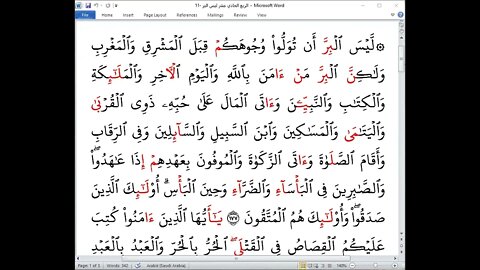 الربع الحادي عشر ليس البر -11 - Microsoft Word
Page Layout References Mailings Review View
۞ لَّيْسَ اَ۬لْبِرُّ أَن تُوَلُّواْ وُجُوهَكُمْ قِبَلَ اَ۬لْمَشْرِقِ وَالْمَغْرِبِ
وَلَٰكِنَّ اَ۬لْبِرَّ مَنْ ءَامَنَ بِاللَّهِ وَالْيَوْمِ اِ۬لْأَخِرِ وَالْمَلَٰٓئِكَةِ
وَالْكِتَٰبِ وَالنَّبِيِّـۧنَ وَءَاتَى اَ۬لْمَالَ عَلَىٰ حُبِّهِۦ ذَوِى اِ۬لْقُرْبَىٰ
وَالْيَتَٰمَىٰ وَالْمَسَٰكِينَ وَابْنَ اَ۬لسَّبِيلِ وَالسَّآئِلِينَ وَفِى اِ۬لرِّقَابِ
وَأَقَامَ اَ۬لصَّلَوٰةَ وَءَاتَى اَ۬لزَّكَوٰةَ وَالْمُوفُونَ بِعَهْدِهِمْ إِذَا عَٰهَدُواْۖ
وَالصَّٰبِرِينَ فِى اِ۬لْبَأْسَآءِ وَالضَّرَّآءِ وَحِينَ اَ۬لْبَأْسِۗ أُوْلَٰٓئِكَ اَ۬لَّذِينَ
صَدَقُواْۖ وَأُوْلَٰٓئِكَ هُمُ اُ۬لْمُتَّقُونَ ١٧٧ يَٰٓأَيُّهَا اَ۬لَّذِينَ ءَامَنُواْ كُتِبَ
عَلَيْكُمُ اُ۬لْقِصَاصُ فِى اِ۬لْقَتْلَىۖ اَ۬لْحُرُّ بِالْحُرِّ وَالْعَبْدُ بِالْعَبْدِ
Page: 1 of 3 Words: 340 Arabic (Saudi Arabia) 140%